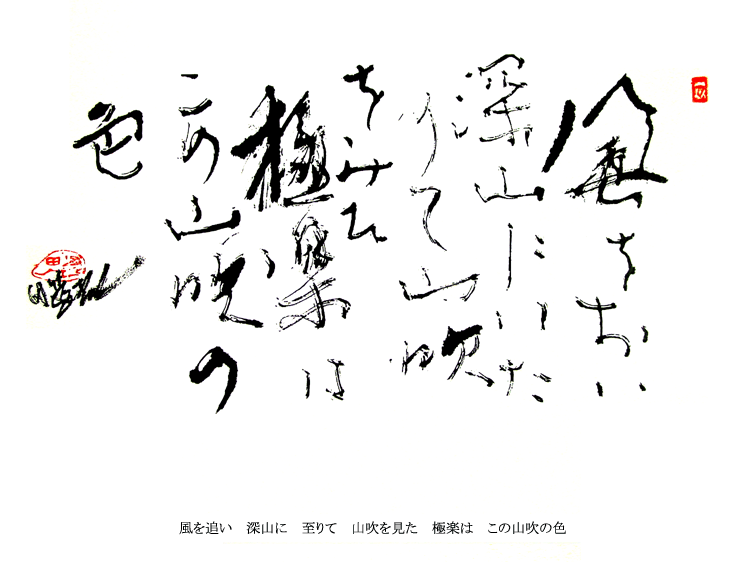 風をおい
深山にいた
りて山吹
をみた
極楽は
この山吹の
色
風を追い　深山に　至りて　山吹を見た　極楽は　この山吹の色